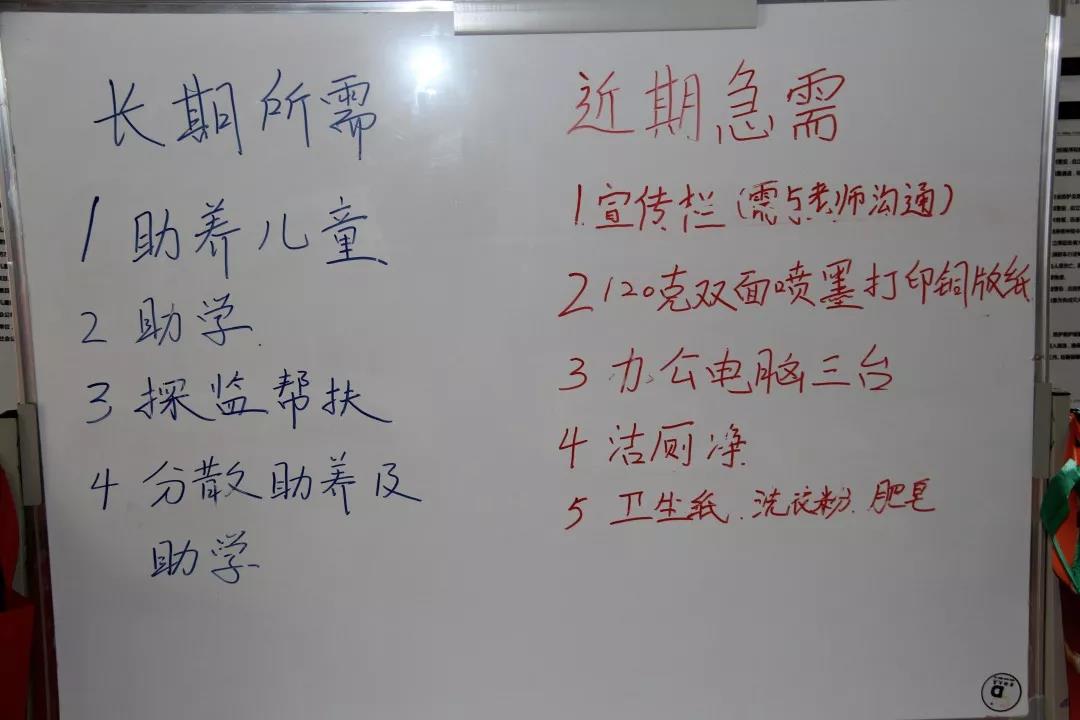 长期所需
1 助养儿童
2 助学
3 探监帮扶
4 分散助养及
助学
近期急需
1.宣传栏(需与老师沟通)
2 120克双面喷墨打印铜版纸
3 办公电脑三台
4 洁厕净
5 卫生纸、洗衣粉、肥皂